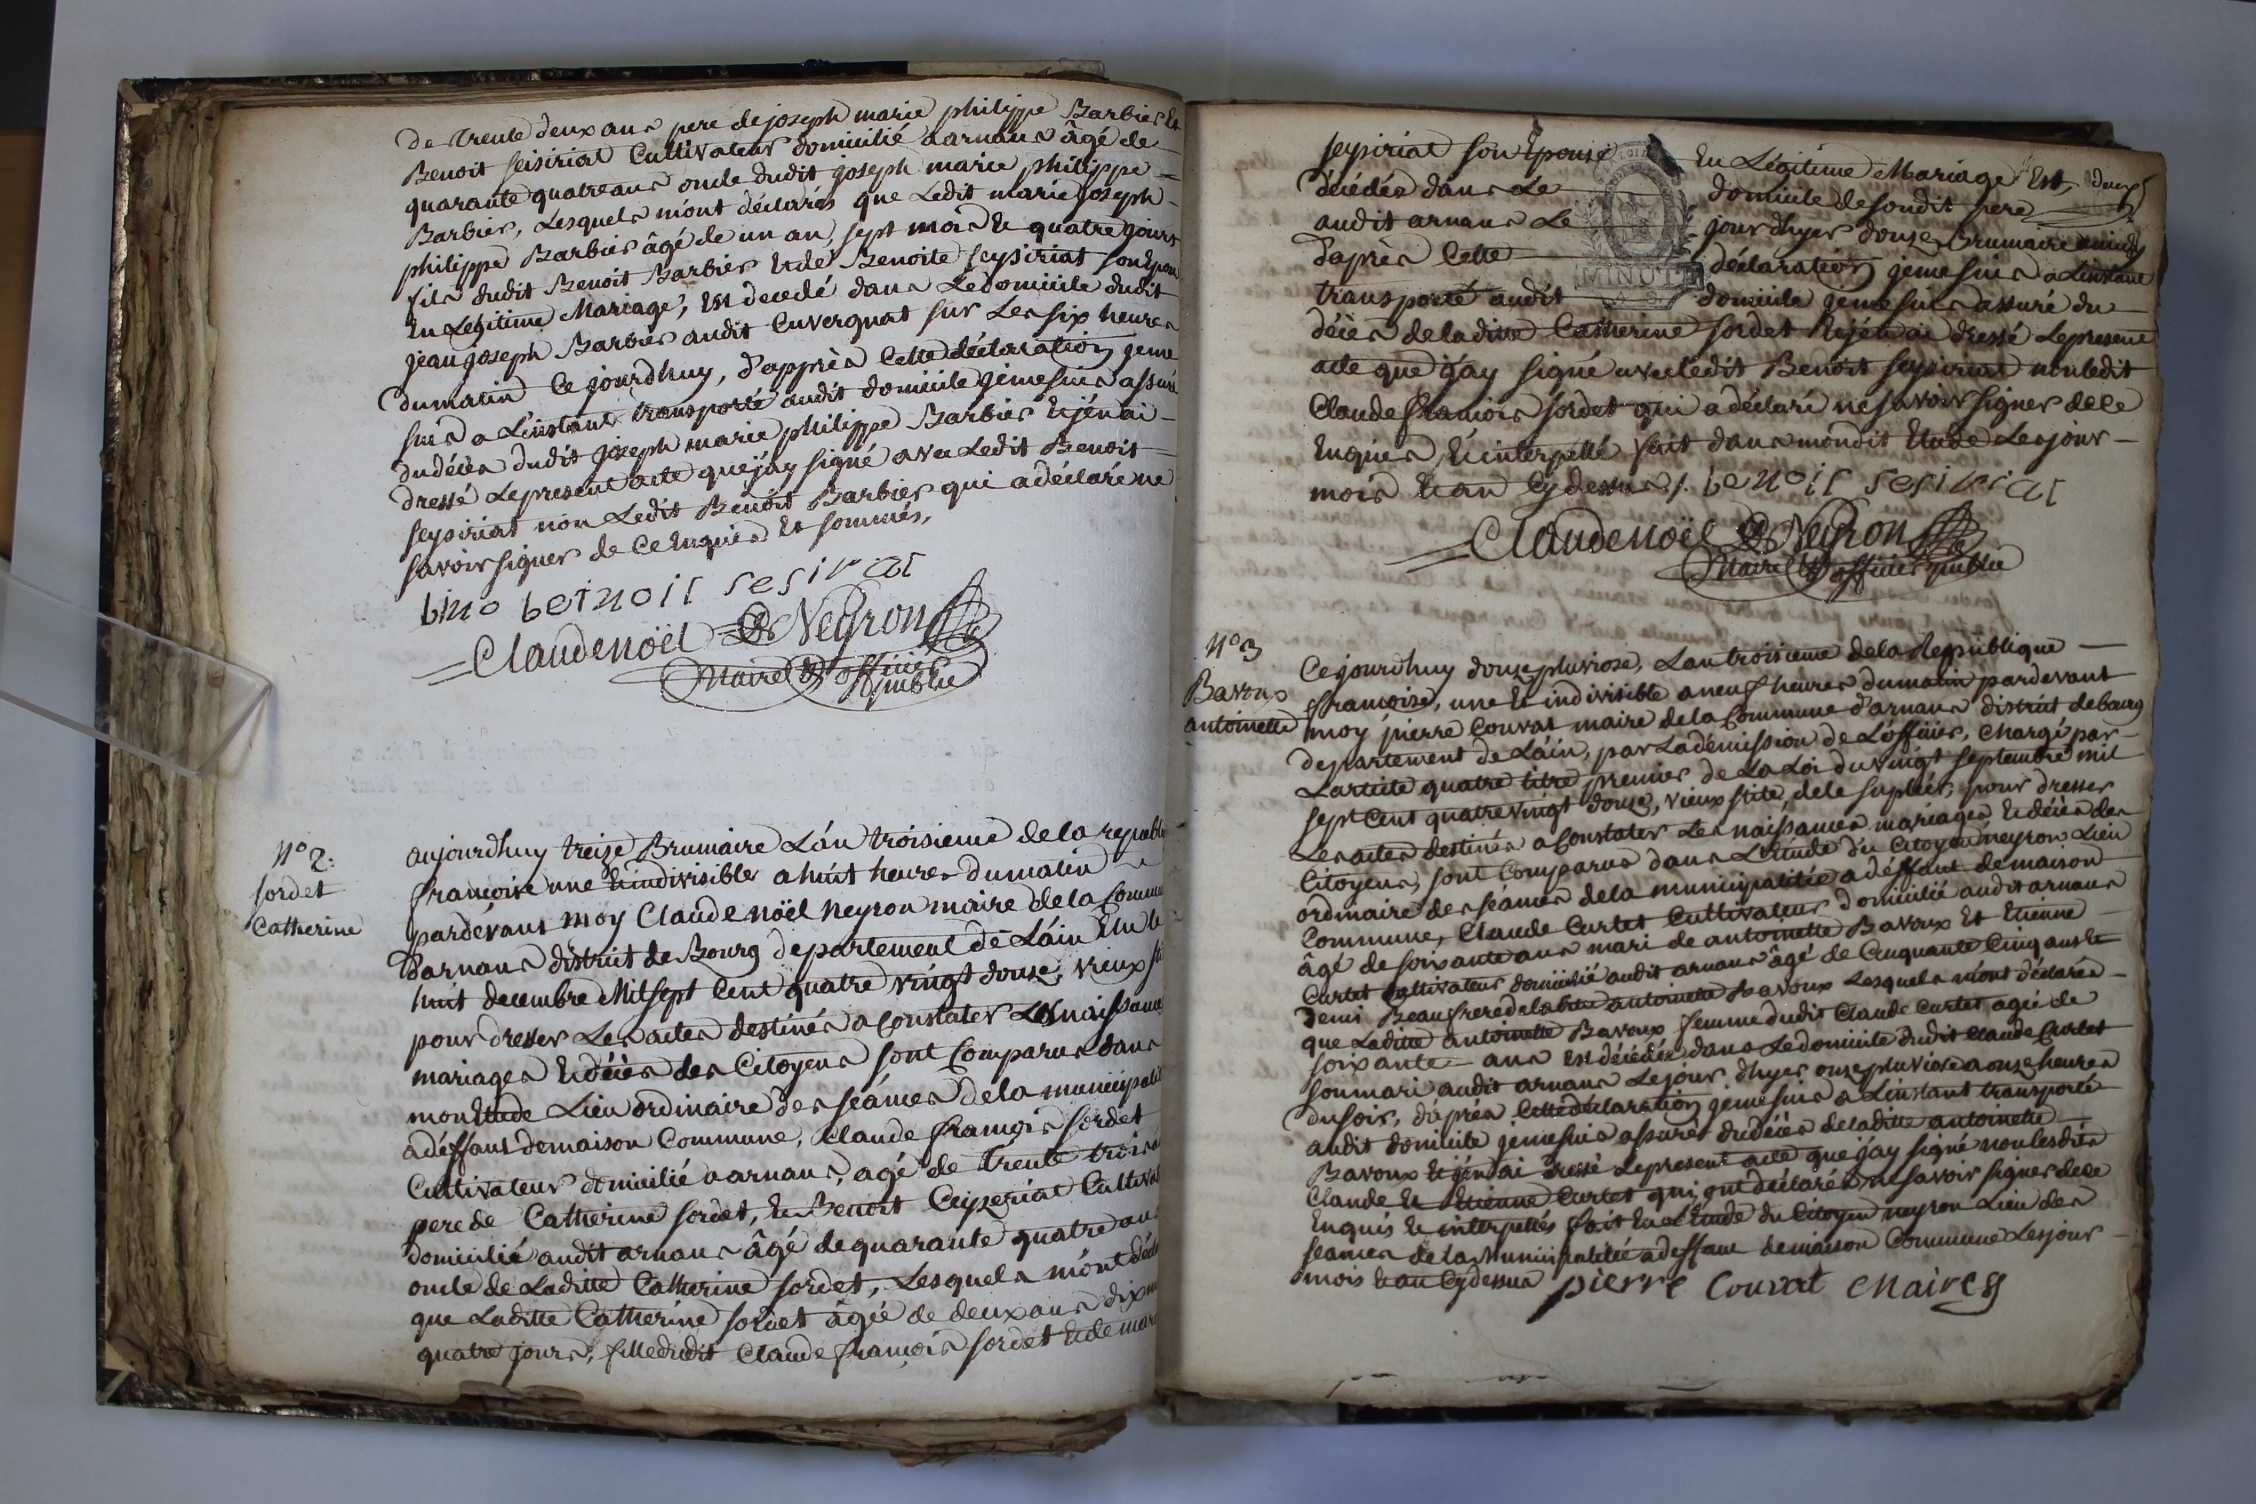 de trente deux ans pere de joseph marie philippe Barbier Et
Benoit seisiriat Cultivateur domicilié a arnans âgé de
quarante quatre ans oncle dudit joseph marie philippe
Barbier, Lesquels m'ont déclarés que Ledit marie joseph
philippe Barbier âgé de un an, sept mois Et quatre jours
fils dudit Benoit Barbier Et de Benoite seysiriat son Epou
En Légitime Mariage, Est decedé dans Le domicile dudit
jean joseph Barbier audit Cuvergnat sur Les six heures
du matin Ce jourdhuy, d'apprès Cette déclaration je me
suis a L'instant transporté audit domicile je me suis assuré
du décès dudit joseph marie philippe Barbier Et j'en ai
dressé Le present acte que j'ay signé avec Ledit Benoit
seysiriat non Ledit Benoit Barbier qui a déclaré ne
savoir signer de Ce Enquis Et sommés,
benoit sesiriat
Claude Noël Neyron
Maire Et officier
public
N° 2:
sordet
Catherine
aujourdhuy treize Brumaire L'an troisieme de la republi
françoise une Et indivisible a huit heures du matin
pardévant moy Claude Noël Neyron maire de la Commu
d'arnans district de Bourg departement de L'ain Elu le
huit decembre Mil sept Cent quatre vingt douze, vieux sti
pour dresser Les actes destinés a Constater Les naissance
mariages Et décès des Citoyens sont Comparus dans
mon Etude Lieu ordinaire des séances de la municipali
a déffaut de maison Commune, Claude françois sordet
Cultivateur domicilié a arnans, agé de trente trois
pere de Catherine sordet, Et Benoit Ceyzeriat Cultiva
domicilié audit arnans âgé de quarante quatre ans
oncle de Laditte Catherine sordet, Lesquels m'ont décl
que Laditte Catherine sordet âgée de deux ans dix m
quatre jours, fille dudit Claude françois sordet Et de mar
seysiriat son Epouse En Légitime Mariage Est
décédée dans Le domicile de son dit pere
audit arnans Le jour dhyer douze Brumaire
d'après Cette déclaration je me suis a L'instant
MINUTE
transporté audit domicile je me suis assuré du
décès de laditte Catherine sordet Et j'en ai dressé Le present
acte que j'ay signé avec Ledit Benoit seysiriat non Ledit
Claude françois sordet qui a déclaré ne savoir signer de Ce
Enquis Et interpellé fait dans mondit Etude Les jour
mois Et an Cy dessus. benoit sesiriat
Claude Noël Neyron
Maire Et officier public
N° 3
Bavoux
antoinette
Ce jourdhuy douze pluviose, L'an troisieme de la Republique
françoise, une Et indivisible a neuf heures du matin pardevant
moy pierre Couvat maire de la Commune d'arnans district de bourg
departement de L'ain, par La démission de L'officier, chargé par
L'article quatre titre premier de La Loi du vingt septembre mil
sept Cent quatre vingt douze, vieux stile, de le supléer, pour dresser
Les actes destinés a Constater Les naissances mariages Et décès des
Citoyens, sont Comparus dans L'Etude du Citoyen neyron Lieu
ordinaire des séances de la municipalitée a déffaut de maison
Commune, Claude Curtet Cultivateur domicilié audit arnans
âgé de soixante ans mari de antoinette Bavoux Et Etienne
Curtet Cultivateur domicilié audit arnans âgé de Cinquante Cinq ans Et
demi Beaufrere de laditte antoinette Bavoux Lesquels m'ont déclarés
que Laditte antoinette Bavoux femme dudit Claude Curtet agée de
soixante ans Est décédée dans Le domicile dudit Claude Curtet
son mari audit arnans Le jour dhyer onze pluviose a onze heures
du soir, d'après Cette déclaration je me suis a L'instant transporté
audit domicile je me suis assuré du décès de laditte antoinette
Bavoux Et j'en ai dressé Le present acte que j'ay signé non lesdits
Claude Et Etienne Curtet qui ont déclarés ne savoir signer de Ce
Enquis Et interpellés fait En L'Etude du Citoyen neyron Lieu des
séances de la Municipalitée a deffaut de maison Commune Les jour
mois Et an Cy dessus pierre Couvat Maire